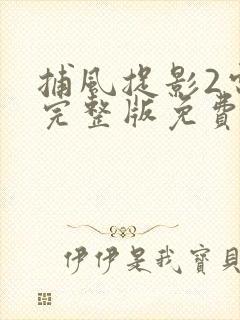 捕風捉影2
完整版免費
伊伊是我寶貝